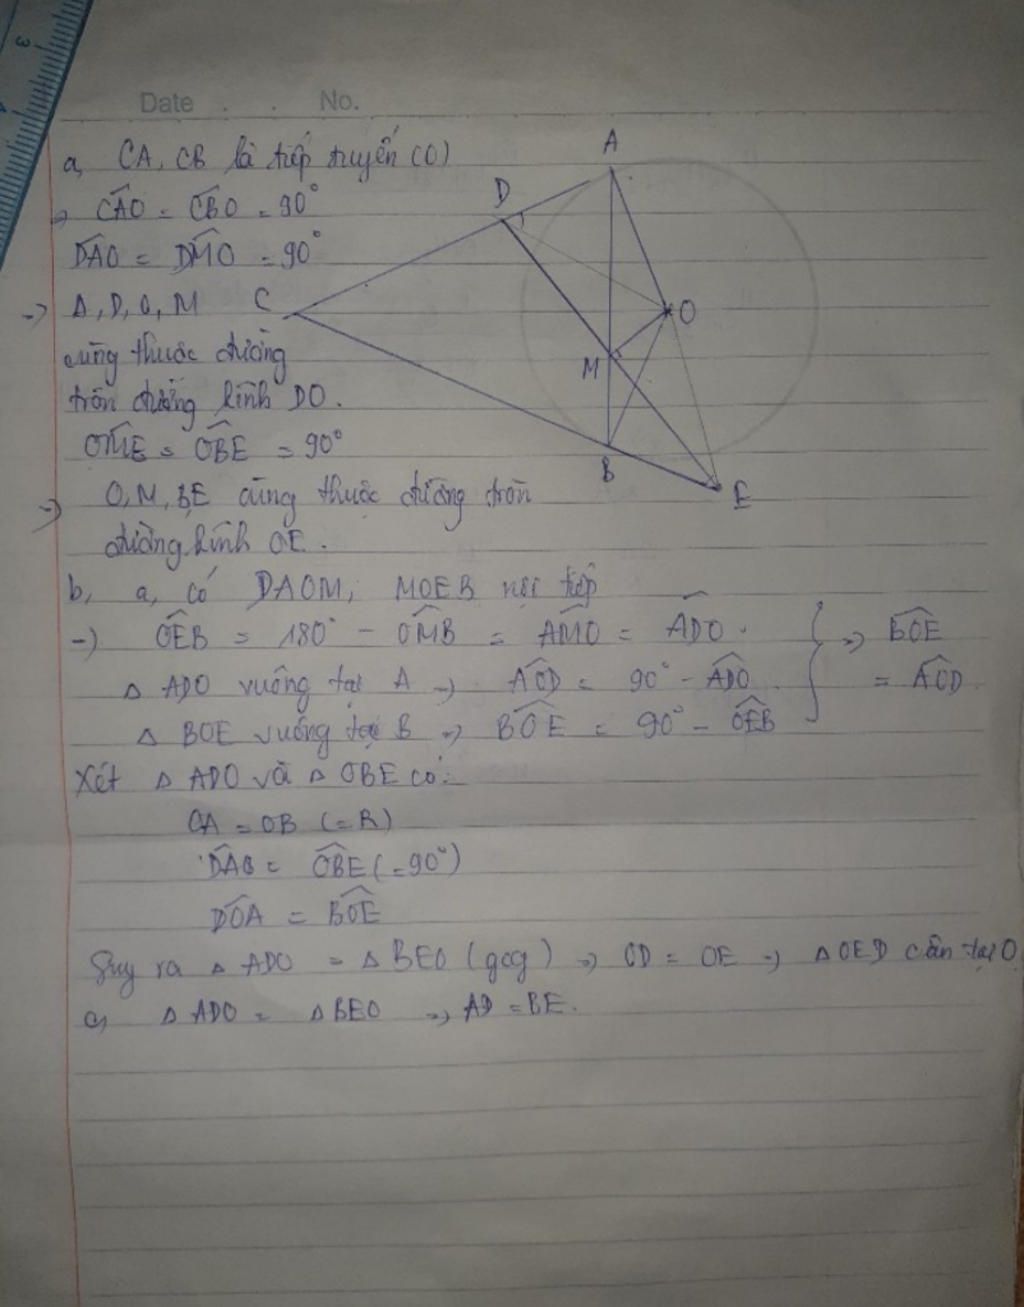 Date . . No.
a, CA, CB là tiếp tuyến (O)
=> CAO = CBO = 90°
DAO = DMO = 90°
-> A, D, O, M
cùng thuộc đường
tròn đường kính DO.
OME = OBE = 90°
-> O, M, B, E cùng thuộc đường tròn
đường kính OE.
A
D
C
O
M
B
E
b, a, có DAOM, MOEB nội tiếp
-> OEB = 180° - OMB = AMO = ADO.
Δ ADO vuông tại A -> AOD = 90° - ADO
Δ BOE vuông tại B -> BOE = 90° - OEB
} => BOE
= AOD
Xét Δ ADO và Δ OBE có:
OA = OB (=R)
DAO = OBE (=90°)
DOA = BOE
Suy ra Δ ADO = Δ BEO (gcg) => OD = OE -> Δ OED cân tại O
c, Δ ADO = Δ BEO => AD = BE.
3